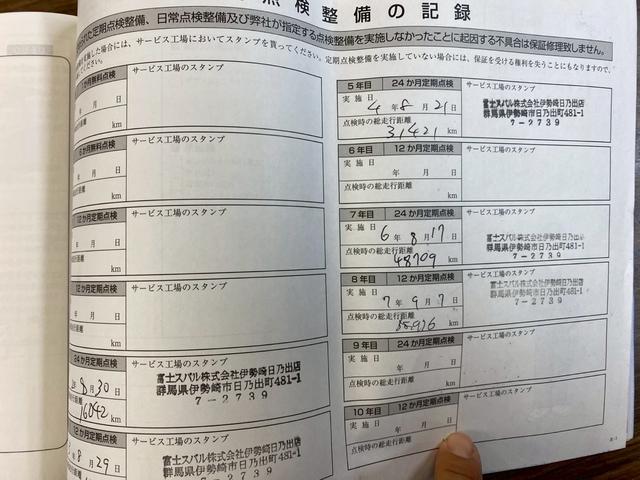 点検整備の記録
れた定期点検整備、日常点検整備及び弊社が指定する点検整備を実施しなかったことに起因する不具合は保証修理致しません。
を実施した場合には、サービス工場においてスタンプを貰ってください。定期点検整備を実施していない場合には、保証を受ける権利を失うこともありますので、
ください。
月無料点検
サービス工場のスタンプ
年 月 日
km
か月無料点検
サービス工場のスタンプ
年 月 日
km
12か月定期点検
サービス工場のスタンプ
年 月 日
km
12か月定期点検
サービス工場のスタンプ
年 月 日
km
24か月定期点検
サービス工場のスタンプ
8月30日
16042 km
富士スバル株式会社伊勢崎日乃出店
群馬県伊勢崎市日乃出町481-1
7-2739
12か月定期点検
サービス工場のスタンプ
8月29日
km
富士スバル株式会社伊勢崎日乃出店
群馬県伊勢崎市日乃出町481-1
7-2739
5年目 24か月定期点検
サービス工場のスタンプ
実施日
4年8月21日
点検時の総走行距離
31421 km
富士スバル株式会社伊勢崎日乃出店
群馬県伊勢崎市日乃出町481-1
7-2739
6年目 12か月定期点検
サービス工場のスタンプ
実施日
年 月 日
点検時の総走行距離
km
7年目 24か月定期点検
サービス工場のスタンプ
実施日
6年8月17日
点検時の総走行距離
48709 km
富士スバル株式会社伊勢崎日乃出店
群馬県伊勢崎市日乃出町481-1
7-2739
8年目 12か月定期点検
サービス工場のスタンプ
実施日
7年9月7日
点検時の総走行距離
km
富士スバル株式会社伊勢崎日乃出店
群馬県伊勢崎市日乃出町481-1
7-2739
9年目 24か月定期点検
サービス工場のスタンプ
実施日
年 月 日
点検時の総走行距離
km
10年目 12か月定期点検
サービス工場のスタンプ
実施日
年 月 日
点検時の総走行距離